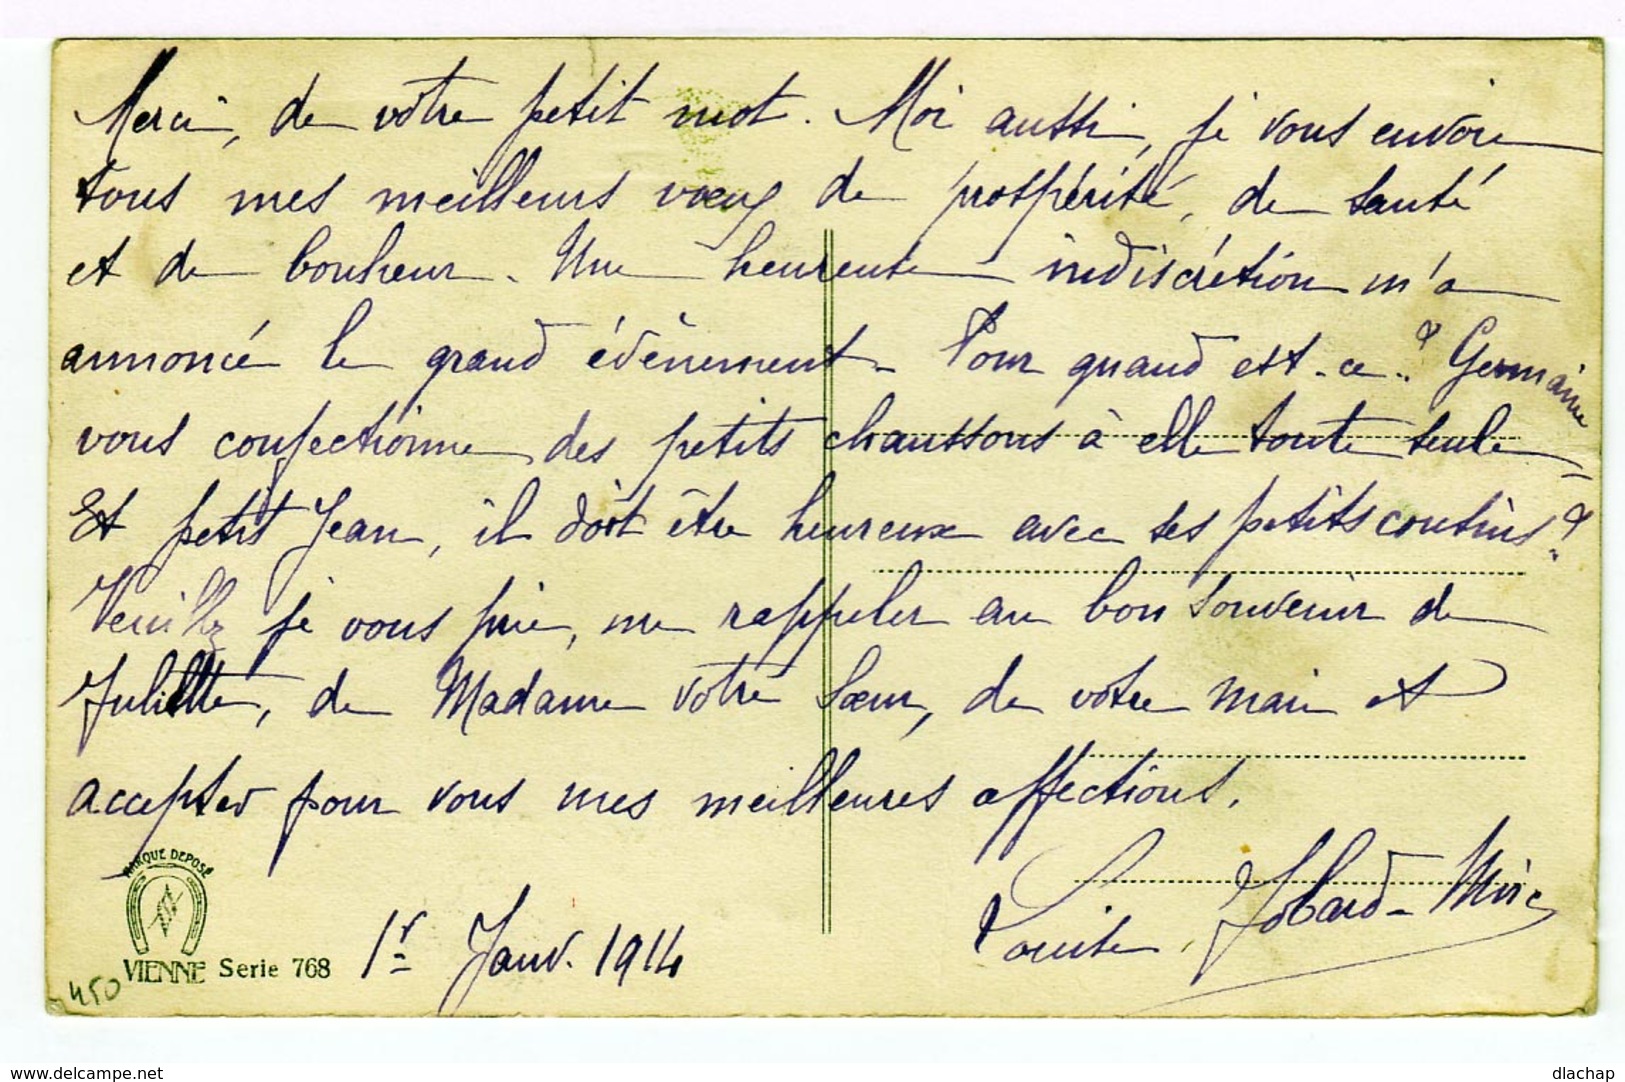 Merci, de votre petit mot. Moi aussi, je vous envoie
tous mes meilleurs vœux de prospérité, de santé
et de bonheur. Une heureuse indiscrétion m'a
annoncé le grand évènement. Pour quand est-ce ? Germaine
vous confectionne des petits chaussons à elle toute seule
Et petit Jean, il doit être heureux avec ses petits cousins ?
Veuillez je vous prie, me rappeler au bon souvenir de
Juliette, de Madame votre Sœur, de votre mari et
accepter pour vous mes meilleures affections.
Louise Jobard-
1r Janv. 1914
MARQUE DEPOSÉ
VIENNE Serie 768
450
delcampe.net
dlachap